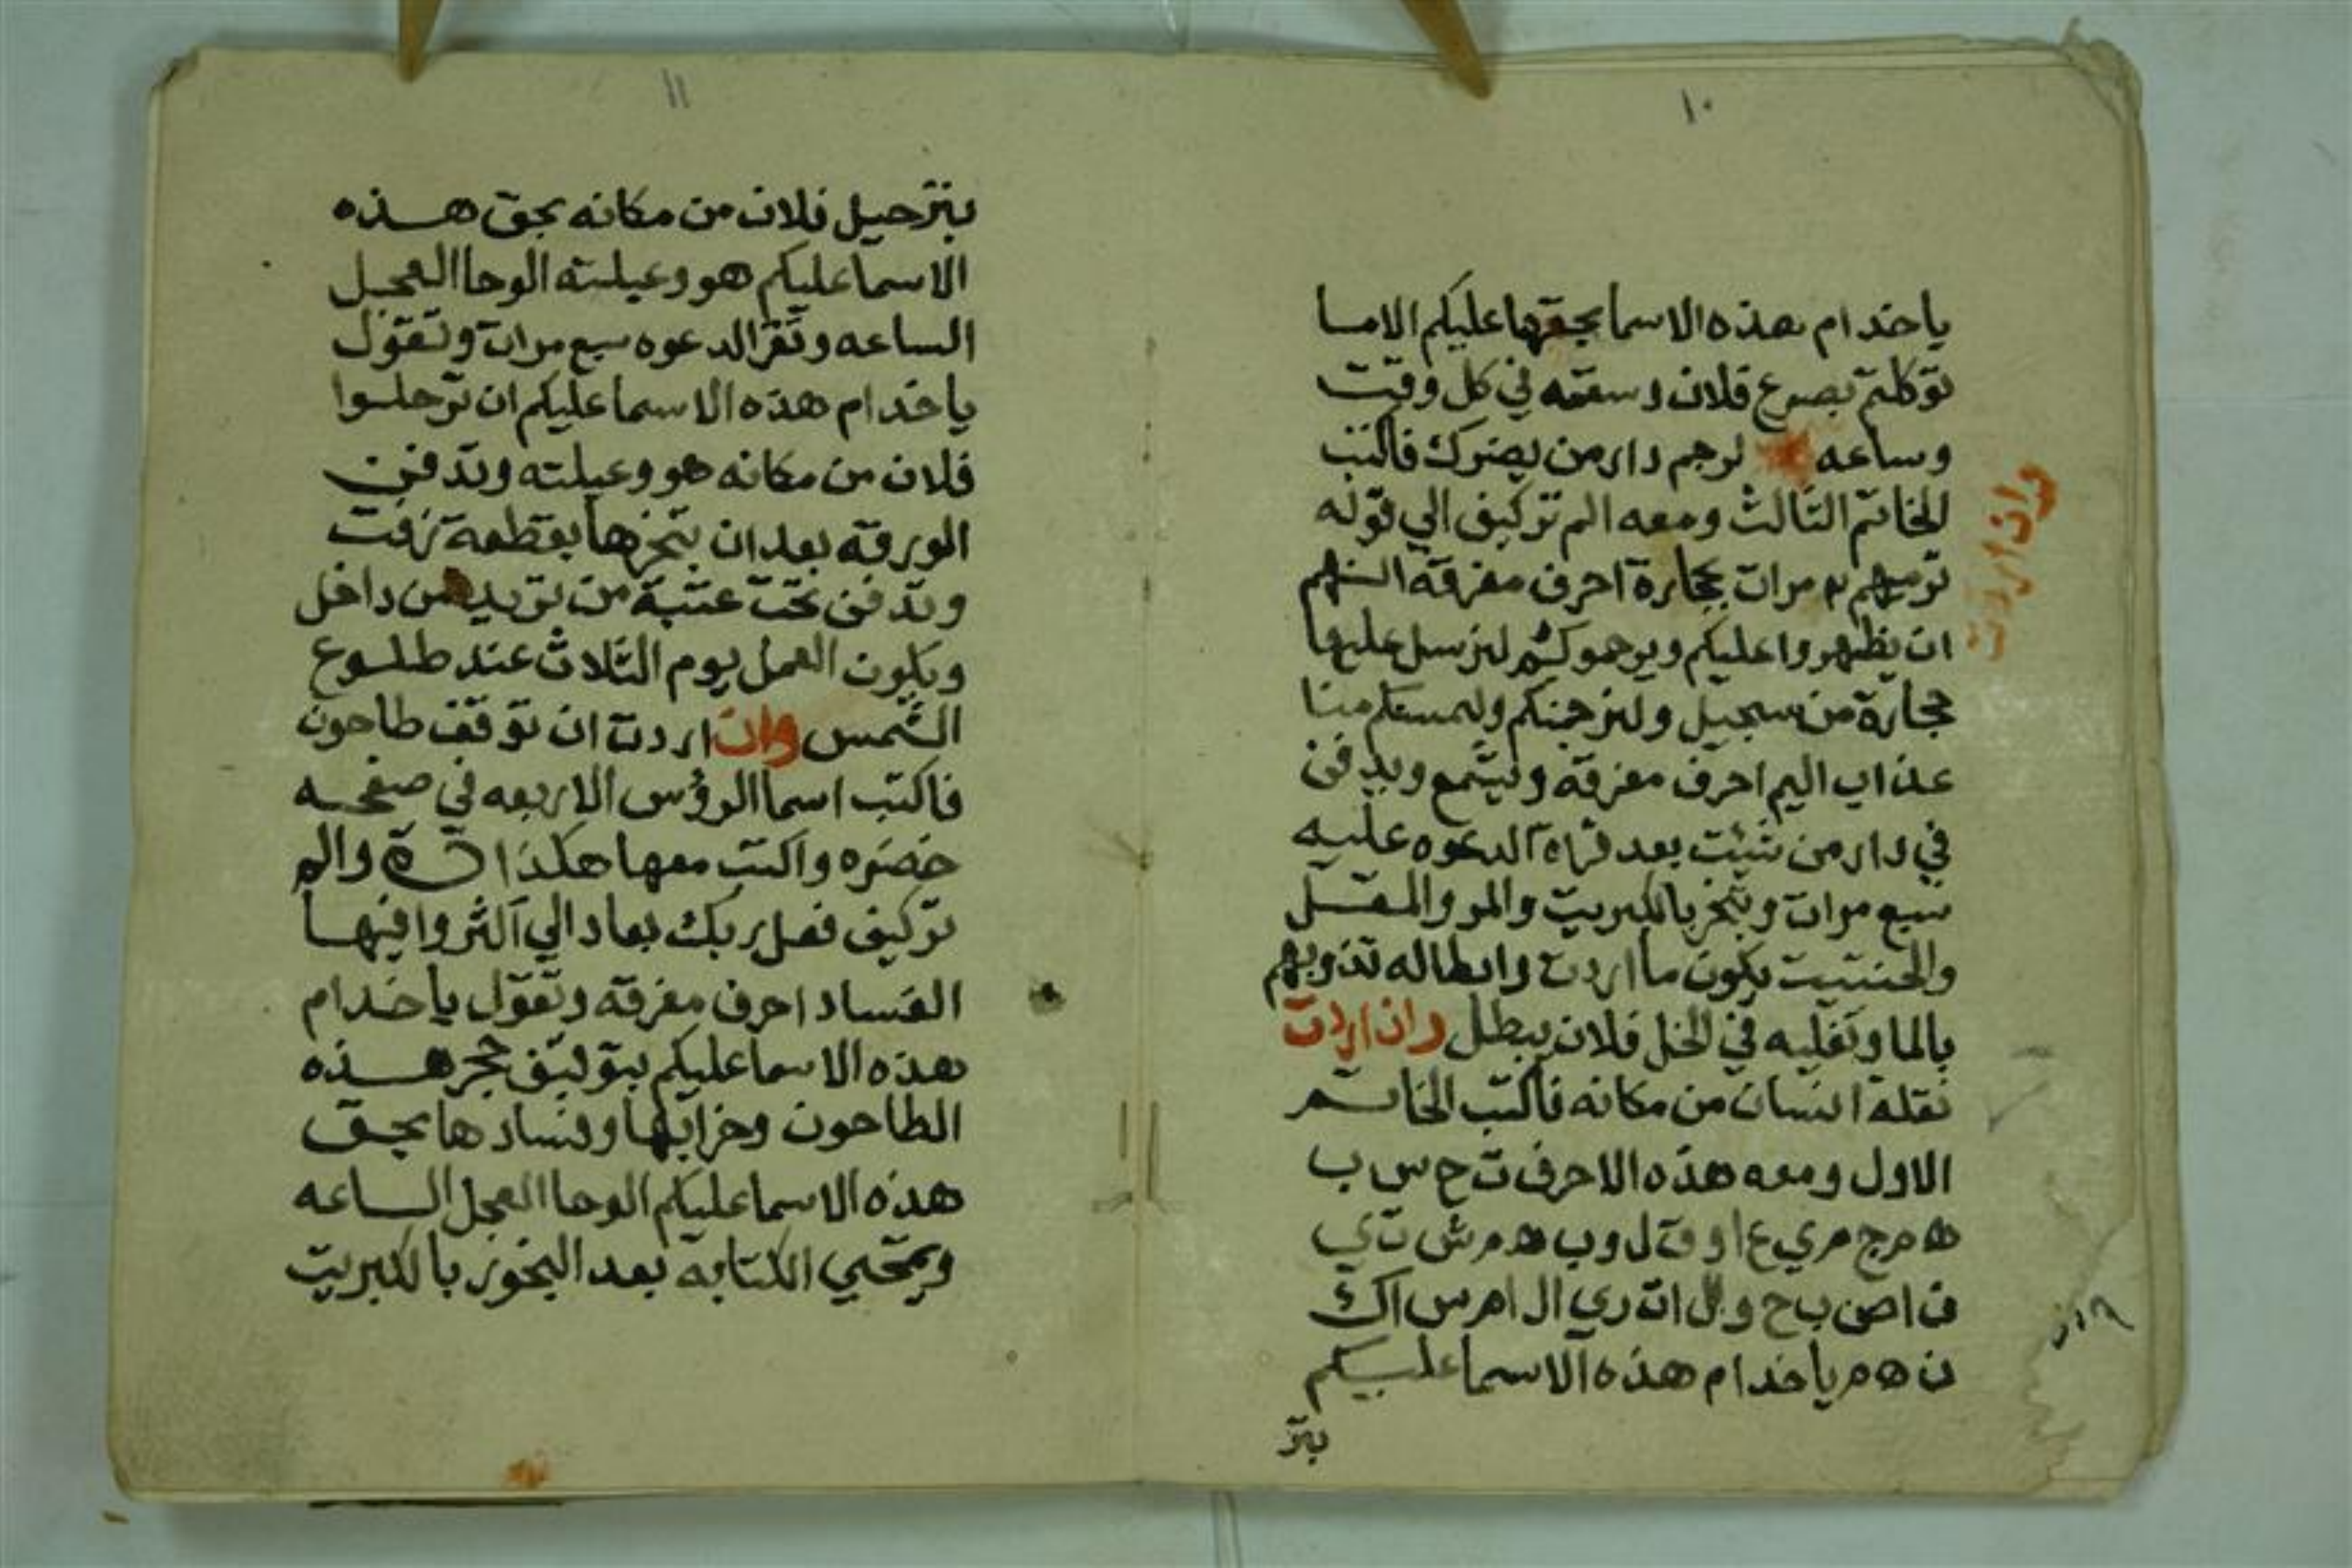 ١٠
ياخدام هذه الاسما بحقها عليكم الاما
توكلتم بصرع فلان وسقمه في كل وقت
وساعه لرجم دار من يضرك فاكتب
وان اردت
الخاتم الثالث ومعه الم تركيف الي قوله
ترميهم مرات بحجارة احرف مفرقه انهم
ان يظهروا عليكم ويرجموكم لنرسل عليها
حجارة من سجيل ولنرجمنكم وليمسنكم منا
عذاب اليم احرف مفرقه ويشمع ويدفن
في دار من شيت بعد قراة الدعوه عليه
سبع مرات وتبخر بالكبريت والمر والمقل
والحنتيت يكون ما اردت وابطاله تذوبهم
بالما وتغليه في الخل فلان يبطل وان اردت
نقلة انسان من مكانه فاكتب الخاتم
الاول ومعه هذه الاحرف ت ح س ب
ه م ج م ي ع ا و ق ل و ب ه م ش ت ي
ف ا ص ب ح و ا ل ا ت ر ي ا ل ا م س ا ك
ن ه م ياخدام هذه الاسما عليكم
بتر
١١
بترحيل فلان من مكانه بحق هذه
الاسما عليكم هو وعيلته الوحا العجل
الساعه وتقرا الدعوه سبع مرات وتقول
ياخدام هذه الاسما عليكم ان ترحلوا
فلان من مكانه هو وعيلته وتدفن
الورقه بعد ان تبخرها بقطعة زفت
وتدفن تحت عتبة من تريد من داخل
ويكون العمل يوم التلات عند طلوع
الشمس وان اردت ان توقف طاحون
فاكتب اسما الروس الاربعه في صفحه
واكتب معها هكذا والم
تركيف فعل ربك بعاد الي اكثروا فيها
الفساد احرف مفرقه وتقول ياخدام
هذه الاسما عليكم بتوقيف حجر هذه
الطاحون وخرابها وفسادها بحق
هذه الاسما عليكم الوحا العجل الساعه
ويمحي الكتابه بعد البخور بالكبريت